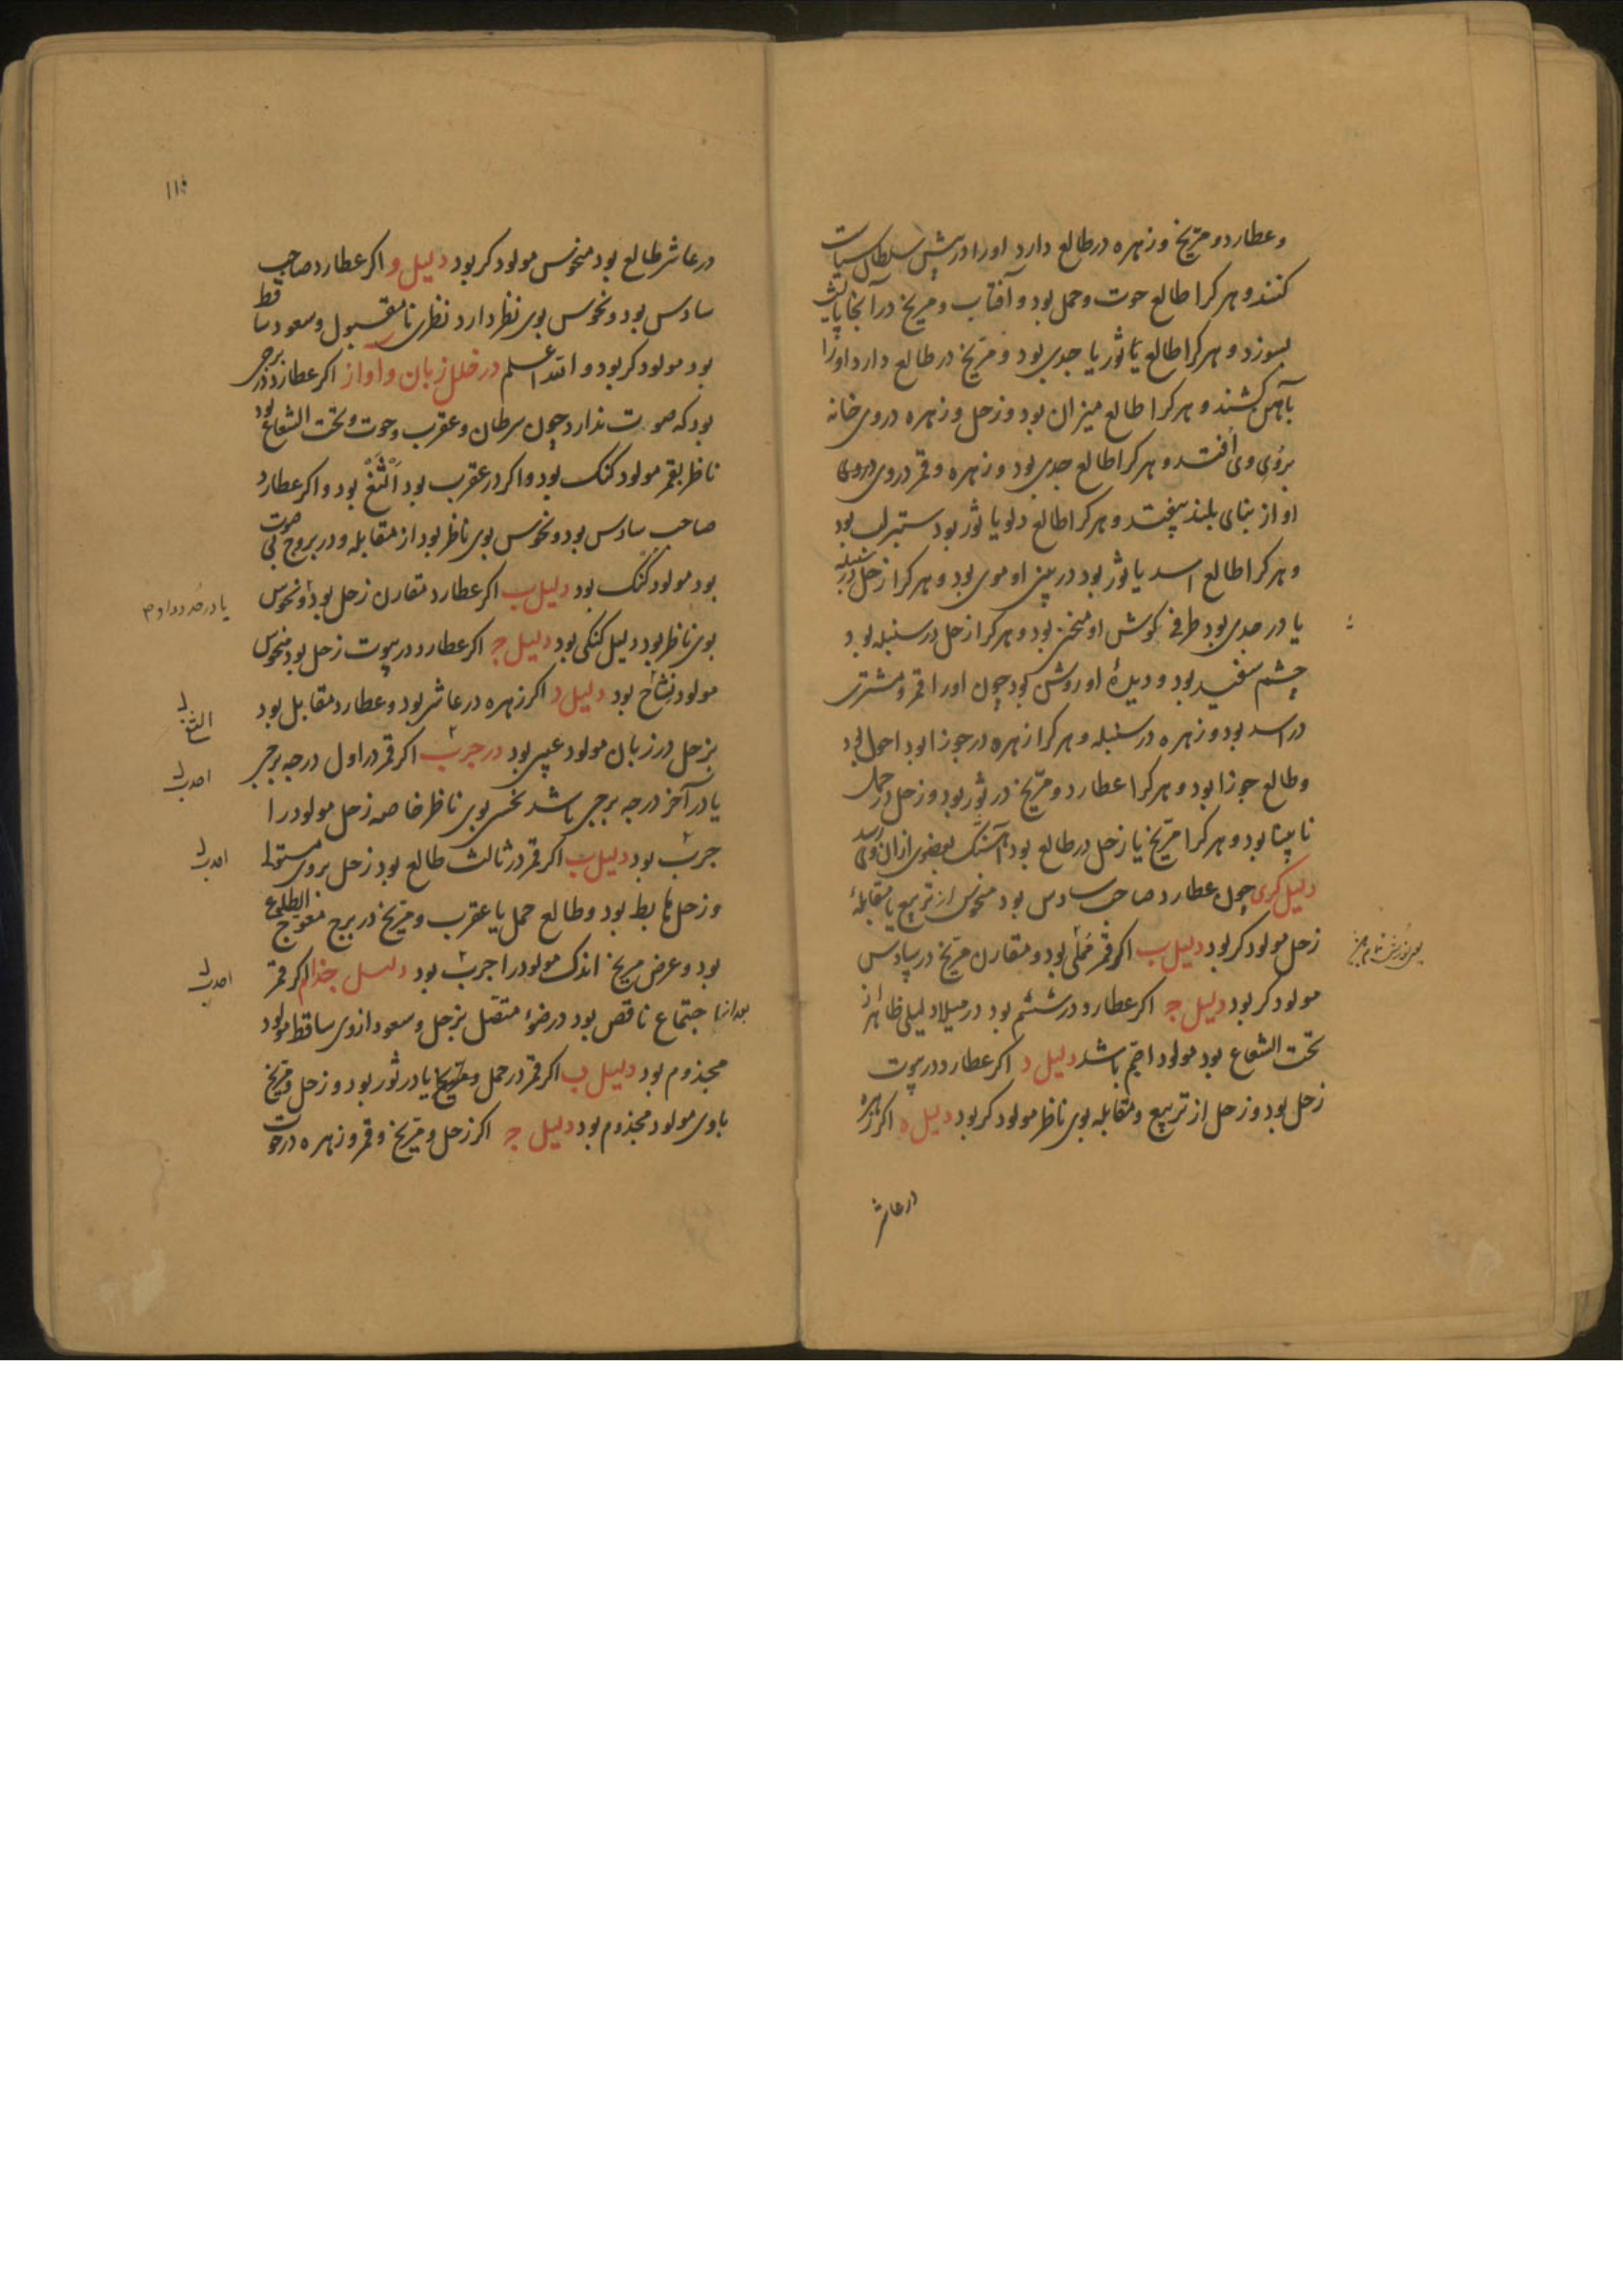 وعطارد و مریخ و زهره در طالع دارد او را در پیش سلطان سیاست
کنند و هر کرا طالع حوت و حمل بود و آفتاب و مریخ در آنجا پایش
بسوزد و هر کرا طالع یا ثور یا جدی بود و مریخ در طالع دارد او را
بآهن کشند و هر کرا طالع میزان بود و زحل و زهره در وی خانه
بروی وی افتد و هر کرا طالع جدی بود و زهره و قمر در وی
او از بنای بلند بیفتد و هر کرا طالع دلو یا ثور بود ستبر لب بود
و هر کرا طالع اسد یا ثور بود در بینی او موی بود و هر کرا زحل در سنبله
یا در جدی بود طرفی کوش او منخن بود و هر کرا زحل در سنبله بود
چشم سفید بود و دیدهٔ او روشن بود چون او را قمر و مشتری
در اسد بود و زهره در سنبله و هر کرا زهره در جوزا بود احول بود
و طالع جوزا بود و هر کرا عطارد و مریخ در ثور بود و زحل در حمل
نابینا بود و هر کرا مریخ یا زحل در طالع بود بعضوی از آن وی رسد
دلیل کری چون عطارد صاحب سادس بود منحوس از تربیع یا مقابلهٔ
زحل مولود کر بود دلیل ب اکر قمر ممتلی بود و مقارن مریخ در سادس
مولود کر بود دلیل ج اکر عطارد در ششم بود در میلاد لیلی ظاهر از
تحت الشعاع بود مولود اصم باشد دلیل د اکر عطارد در بیوت
زحل بود و زحل از تربیع و مقابله بوی ناظر مولود کر بود دلیل ه اکر زهره
در عاشر
۱۱۰
در عاشر طالع بود منحوس مولود کر بود دلیل و اکر عطارد صاحب
سادس بود و نحوس بوی نظر دارد نظری نامقبول و سعود ساقط
بود مولود کر بود و الله اعلم در خلل زبان و آواز اکر عطارد در برجی
بود که صوت ندارد چون سرطان و عقرب و حوت و تحت الشعاع بود
ناظر بقمر مولود کنک بود و اکر در عقرب بود اَلْثَغْ بود و اکر عطارد
صاحب سادس بود و نحوس بوی ناظر بود از مقابله و در بروج بی صوت
بود مولود کنک بود دلیل ب اکر عطارد مقارن زحل بود و نحوس
بوی ناظر بود دلیل کنکی بود دلیل ج اکر عطارد در بیوت زحل بود منحوس
مولود بود دلیل د اکر زهره در عاشر بود و عطارد مقابل بود
بزحل در زبان مولود عیبی بود در جرب اکر قمر در اول درجه برجی
یا در آخر درجه برجی باشد نحسی بوی ناظر خاصه زحل مولود را
جرب بود دلیل ب اکر قمر در ثالث طالع بود زحل بروی مستولی
و زحل هابط بود و طالع حمل یا عقرب و مریخ در برج معوج الطلوع
بود و عرض مریخ اندک مولود را جرب بود دلیل جذام اکر قمر
بعد از اجتماع ناقص بود در ضوء متصل بزحل و سعود از وی ساقط مولود
مجذوم بود دلیل ب اکر قمر در حمل یا در ثور بود و زحل و مریخ
با وی مولود مجذوم بود دلیل ج اکر زحل و مریخ و قمر و زهره در حوت